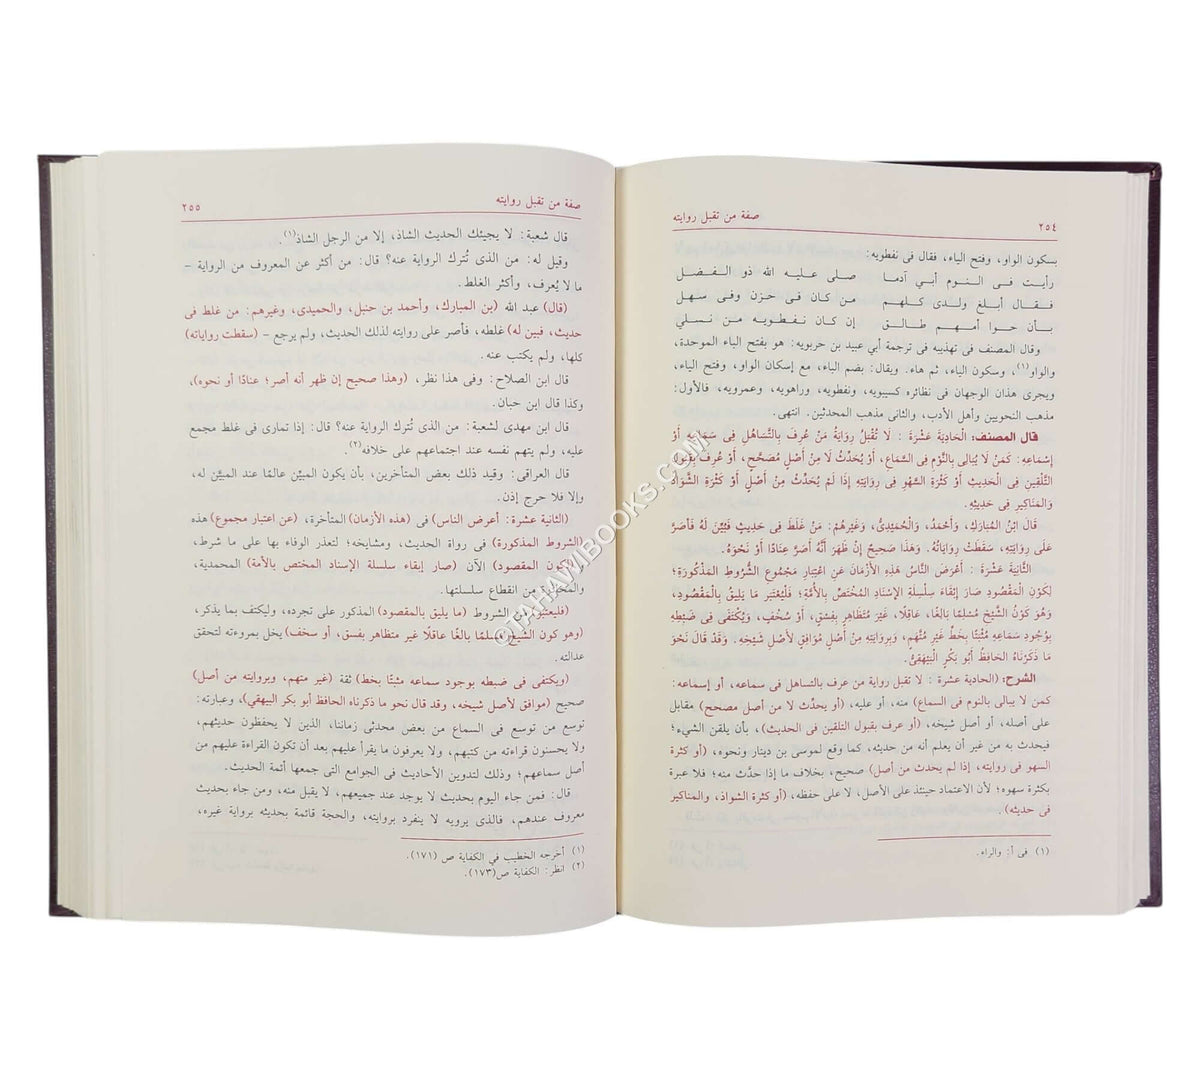 ٢٥٤ صفة من تقبل روايته
بسكون الواو، وفتح الياء، فقال فى نفطويه:
رأيت فى النوم أبي آدما صلى عليه الله ذو الفضل
فقال أبلغ ولدى كلهم من كان فى حزن وفى سهل
بأن حوا أمهم طالق إن كان نفطويه من نسلي
وقال المصنف فى تهذيبه فى ترجمة أبي عبيد بن حربويه: هو بفتح الباء الموحدة،
والواو(١)، وسكون الياء، ثم هاء. ويقال: بضم الباء، مع إسكان الواو، وفتح الياء،
ويجرى هذان الوجهان فى نظائره كسيبويه، ونفطويه، وراهويه، وعمرويه، فالأول:
مذهب النحويين وأهل الأدب، والثانى مذهب المحدثين. انتهى.
قال المصنف: الْحَادِيَةَ عَشْرَةَ : لَا تُقْبَلُ رِوَايَةُ مَنْ عُرِفَ بِالتَّسَاهُلِ فِى سَمَاعِهِ أَوْ
إِسْمَاعِهِ: كَمَنْ لَا يُبَالِى بِالنَّوْمِ فِى السَّمَاعِ، أَوْ يُحَدِّثُ لَا مِنْ أَصْلٍ مُصَحَّحٍ، أَوْ عُرِفَ بِقَبُولِ
التَّلْقِينِ فِى الْحَدِيثِ أَوْ كَثْرَةِ السَّهْوِ فِى رِوَايَتِهِ إِذَا لَمْ يُحَدِّثْ مِنْ أَصْلٍ أَوْ كَثْرَةِ الشَّوَاذِّ
وَالْمَنَاكِيرِ فِى حَدِيثِهِ.
قَالَ ابْنُ الْمُبَارَكِ، وَأَحْمَدُ، وَالْحُمَيْدِىُّ، وَغَيْرُهُمْ: مَنْ غَلِطَ فِى حَدِيثٍ فَبُيِّنَ لَهُ فَأَصَرَّ
عَلَى رِوَايَتِهِ، سَقَطَتْ رِوَايَاتُهُ. وَهَذَا صَحِيحٌ إِنْ ظَهَرَ أَنَّهُ أَصَرَّ عِنَادًا أَوْ نَحْوَهُ.
الثَّانِيَةَ عَشْرَةَ : أَعْرَضَ النَّاسُ هَذِهِ الْأَزْمَانَ عَنِ اعْتِبَارِ مَجْمُوعِ الشُّرُوطِ الْمَذْكُورَةِ؛
لِكَوْنِ الْمَقْصُودِ صَارَ إِبْقَاءَ سِلْسِلَةِ الْإِسْنَادِ الْمُخْتَصِّ بِالْأُمَّةِ؛ فَلْيُعْتَبَرْ مَا يَلِيقُ بِالْمَقْصُودِ،
وَهُوَ كَوْنُ الشَّيْخِ مُسْلِمًا بَالِغًا، عَاقِلًا، غَيْرَ مُتَظَاهِرٍ بِفِسْقٍ، أَوْ سُخْفٍ، وَيُكْتَفَى فِى ضَبْطِهِ
بِوُجُودِ سَمَاعِهِ مُثْبَتًا بِخَطٍّ غَيْرِ مُتَّهَمٍ، وَبِرِوَايَتِهِ مِنْ أَصْلٍ مُوَافِقٍ لِأَصْلِ شَيْخِهِ. وَقَدْ قَالَ نَحْوَ
مَا ذَكَرْنَاهُ الْحَافِظُ أَبُو بَكْرٍ الْبَيْهَقِىُّ.
الشرح: (الحادية عشرة : لا تقبل رواية من عرف بالتساهل فى سماعه، أو إسماعه:
كمن لا يبالى بالنوم فى السماع) منه، أو عليه، (أو يحدِّث لا من أصل مصحح) مقابل
على أصله، أو أصل شيخه، (أو عرف بقبول التلقين فى الحديث)، بأن يلقن الشىء؛
فيحدث به من غير أن يعلم أنه من حديثه، كما وقع لموسى بن دينار ونحوه، (أو كثرة
السهو فى روايته، إذا لم يحدث من أصل) صحيح، بخلاف ما إذا حدَّث منه؛ فلا عبرة
بكثرة سهوه؛ لأن الاعتماد حينئذ على الأصل، لا على حفظه، (أو كثرة الشواذ، والمناكير
فى حديثه).
(١) فى أ: والراء.
صفة من تقبل روايته ٢٥٥
قال شعبة: لا يجيئك الحديث الشاذ، إلا من الرجل الشاذ(١).
وقيل له: من الذى تُترك الرواية عنه؟ قال: من أكثر عن المعروف من الرواية -
ما لا يُعرف، وأكثر الغلط.
(قال) عبد الله (بن المبارك، وأحمد بن حنبل، والحميدى، وغيرهم: من غلط فى
حديث، فبين له) غلطه، فأصر على روايته لذلك الحديث، ولم يرجع - (سقطت رواياته)
كلها، ولم يكتب عنه.
قال ابن الصلاح: وفى هذا نظر، (وهذا صحيح إن ظهر أنه أصر؛ عنادًا أو نحوه)،
وكذا قال ابن حبان.
قال ابن مهدى لشعبة: من الذى تُترك الرواية عنه؟ قال: إذا تمارى فى غلط مجمع
عليه، ولم يتهم نفسه عند اجتماعهم على خلافه(٢).
قال العراقى: وقيد ذلك بعض المتأخرين، بأن يكون المبيِّن عالمًا عند المبيَّن له،
وإلا فلا حرج إذن.
(الثانية عشرة: أعرض الناس) فى (هذه الأزمان) المتأخرة، (عن اعتبار مجموع) هذه
(الشروط المذكورة) فى رواة الحديث، ومشايخه؛ لتعذر الوفاء بها على ما شرط،
(لكون المقصود) الآن (صار إبقاء سلسلة الإسناد المختص بالأمة) المحمدية،
والمحاذرة من انقطاع سلسلتها.
(فليعتبر) من الشروط (ما يليق بالمقصود) المذكور على تجرده، وليكتف بما يذكر،
(وهو كون الشيخ مسلمًا بالغًا عاقلًا غير متظاهر بفسق، أو سخف) يخل بمروءته لتحقق
عدالته.
(ويكتفى فى ضبطه بوجود سماعه مثبتًا بخط) ثقة (غير متهم، وبروايته من أصل)
صحيح (موافق لأصل شيخه، وقد قال نحو ما ذكرناه الحافظ أبو بكر البيهقي)، وعبارته:
توسع من توسع فى السماع من بعض محدثى زماننا، الذين لا يحفظون حديثهم،
ولا يحسنون قراءته من كتبهم، ولا يعرفون ما يقرأ عليهم بعد أن تكون القراءة عليهم من
أصل سماعهم؛ وذلك لتدوين الأحاديث فى الجوامع التى جمعها أئمة الحديث.
قال: فمن جاء اليوم بحديث لا يوجد عند جميعهم، لا يقبل منه، ومن جاء بحديث
معروف عندهم، فالذى يرويه لا ينفرد بروايته، والحجة قائمة بحديثه برواية غيره،
(١) أخرجه الخطيب في الكفاية ص (١٧١).
(٢) انظر: الكفاية ص(١٧٣).
©TAHAWIBOOKS.COM